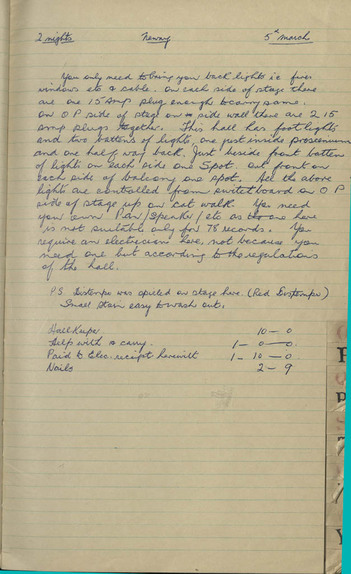 2 nights Newry 5th March
You only need to bring your back lights i.e. fires
windows etc & cable. On each side of stage there
are one 15 amp plug enough to carry same.
On O P side of stage on side wall there are 2 15
amp plugs together. This hall has foot lights
and two battens of lights, one just inside proscenium
and one half way back. Just beside front batten
of lights on each side one Spot. Out front on
each side of balcony one spot. All the above
lights are controlled from switchboard on O P
side of stage up on cat walk. You need
your own Pan/Speaker/etc as the one here
is not suitable only for 78 records. You
require an electrician here, not because you
need one but according to the regulations
of the hall.
P.S. Distemper was spilled on stage here. (Red Distemper)
Small stain easy to wash out.
Hall Keeper 10 - 0
Help with & carry. 1 - 0 - 0
Paid to Elec. receipt herewith 1 - 10 - 0
Nails 2 - 9